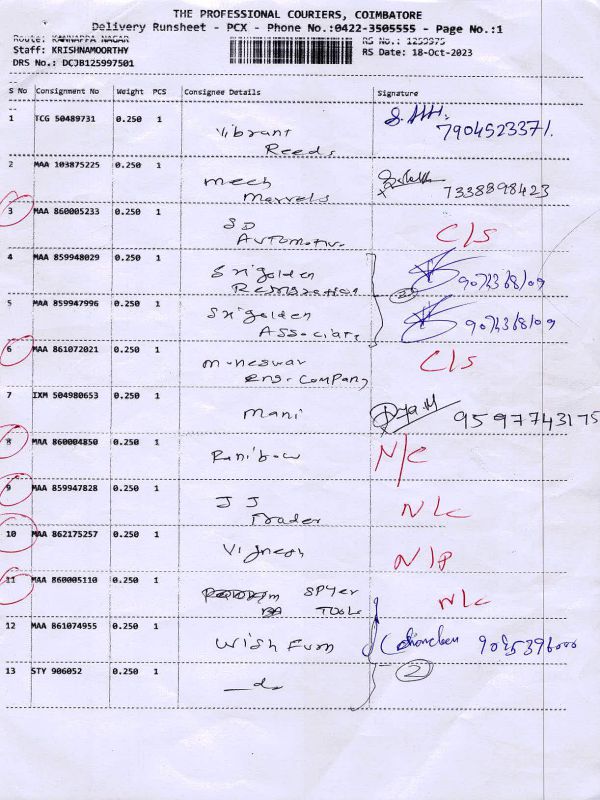 THE PROFESSIONAL COURIERS, COIMBATORE
Delivery Runsheet - PCX - Phone No.:0422-3505555 - Page No.:1
Route: KANNAPPA NAGAR RS No.: 1259975
Staff: KRISHNAMOORTHY RS Date: 18-Oct-2023
DRS No.: DCJB125997501
S No Consignment No Weight PCS Consignee Details Signature
1 TCG 50489731 0.250 1 Vibrant
Reeds 7904523371.
2 MAA 103875225 0.250 1 mech
marvels 7338898423
3 MAA 860005233 0.250 1 SD
Automotive C/S
4 MAA 859948029 0.250 1 Srigolden
5 MAA 859947996 0.250 1 Srigolden
Associate
6 MAA 861072021 0.250 1 muneswar
engr. company C/S
7 IXM 504980653 0.250 1 mani 9597743175
8 MAA 860004850 0.250 1 N/C
9 MAA 859947828 0.250 1 J J
Trader N/C
10 MAA 862175257 0.250 1 Vignesh N/P
11 MAA 860005110 0.250 1 Spyer
Tools N/C
12 MAA 861074955 0.250 1 Wish Furn
13 STY 906052 0.250 1 do 2